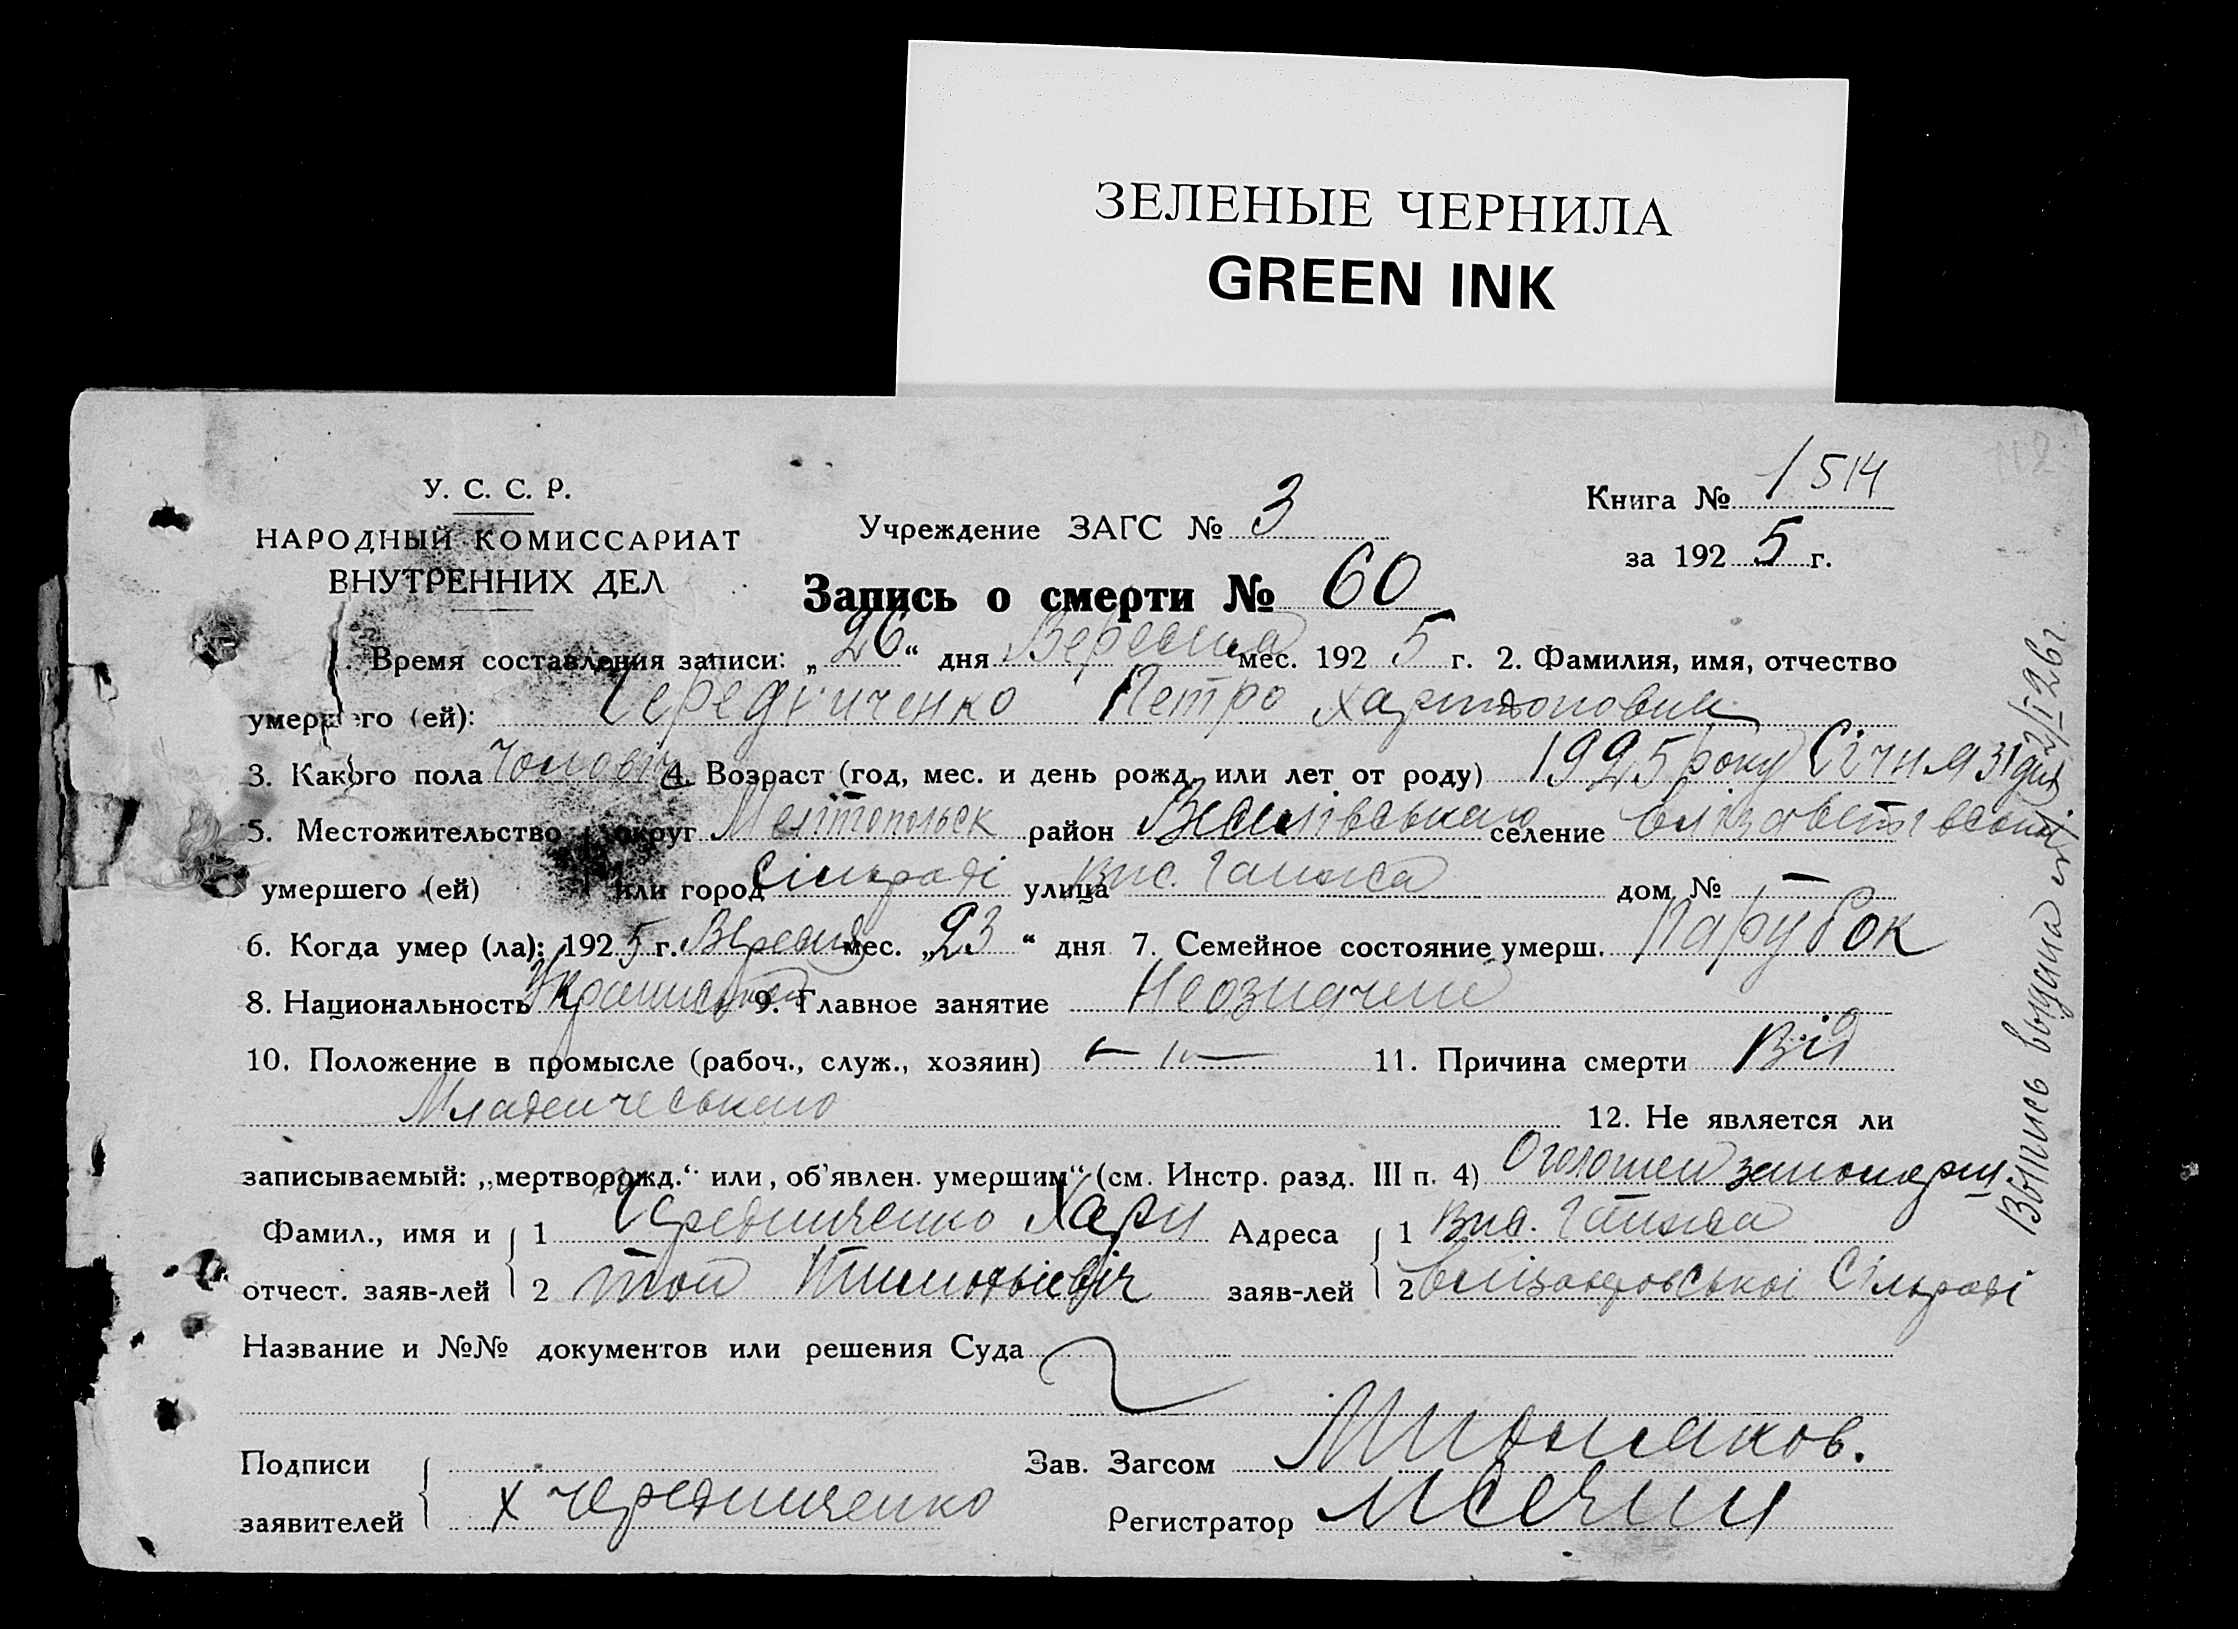 ЗЕЛЕНЫЕ ЧЕРНИЛА
GREEN INK
112
У. С. С. Р.
НАРОДНЫЙ КОМИССАРИАТ
ВНУТРЕННИХ ДЕЛ
Учреждение ЗАГС № 3
Книга № 1514
за 1925 г.
Запись о смерти № 60
Время составления записи: „26“ дня Вересня мес. 1925 г. 2. Фамилия, имя, отчество
умершего (ей): Чередниченко Петро
3. Какого пола Чоловіч 4. Возраст (год, мес. и день рожд. или лет от роду) 1925 року Січня 31 дня
5. Местожительство округ Мелітопольск район Веселівського селение
умершего (ей) или город Сільраді улица Вис. дом № —
6. Когда умер (ла): 1925 г. Вересня мес. „23“ дня 7. Семейное состояние умерш. Парубок
8. Национальность 9. Главное занятие
10. Положение в промысле (рабоч., служ., хозяин) — „ — 11. Причина смерти Від
Младенческого
12. Не является ли
записываемый: „мертворожд.“ или „об'явлен. умершим“ (см. Инстр. разд. III п. 4) Оголошен
Фамил., имя и 1 Чередниченко Хари Адреса 1 Вис.
отчест. заяв-лей 2 тон заяв-лей 2 Сільраді
Название и №№ документов или решения Суда
Подписи Зав. Загсом
заявителей Х Чередниченко Регистратор
Выпись выдана 2/I 26 г.